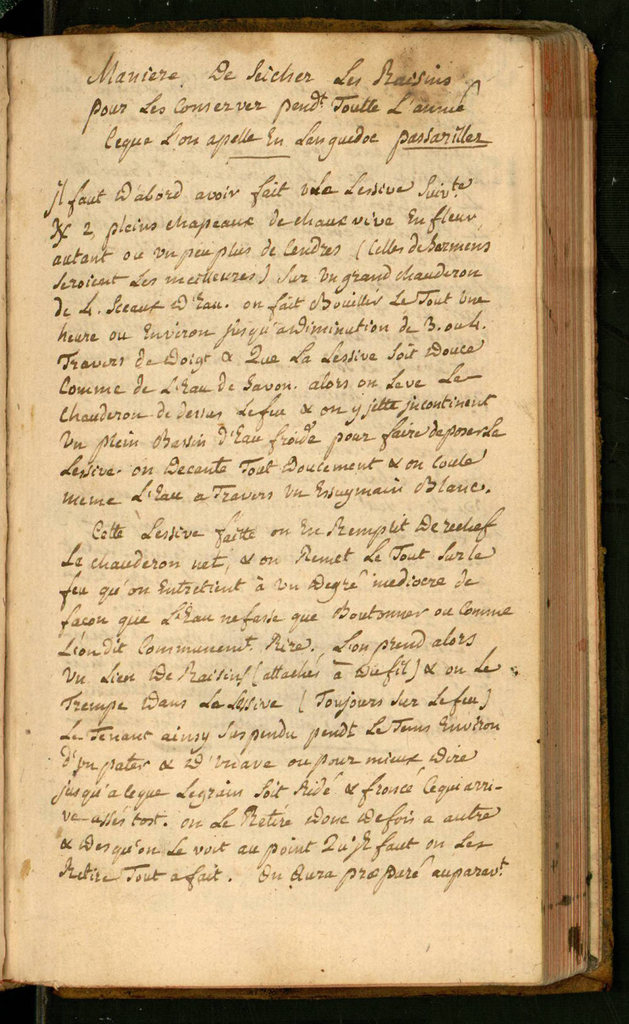 Maniere De Seicher Les Raisins
pour Les Conserver pendt. Toutte L'année
Ceque L'on apelle En Languedoc passariller
Jl faut D'abord avoir fait Une Lessive Suivte.
2 pleins chapeaux de chaux vive En fleur,
autant ou Un peu plus de Cendres (Celles de Sarmens
Seroient Les meilleures) Sur Un grand chauderon
de 4. Sceaux D'Eau. on fait Bouillir Le Tout Une
heure ou Environ jusqu'a diminution de 3. ou 4.
Travers de Doigt & Que La Lessive Soit Douce
Comme de L'Eau de Savon. alors on Leve Le
Chauderon de dessus Le feu & on y jette jncontinent
Un plein Bassin d'Eau froide pour faire deposer La
Lessive. on Decante Tout Doucement & on Coule
meme L'Eau a Travers Un Essuymain Blanc.
Cette Lessive faitte on En Remplit De rechef
Le chauderon net, & on Remet Le Tout Sur le
feu qu'on Entretient à Un Degré mediocre de
façon que L'Eau ne fasse que Boutonner ou Comme
L'on dit Communemt. Rire. L'on prend alors
Un Lien De Raisins (attachés à Du fil) & on Le
Trempe Dans La Lessive (Toujours Sur Le feu)
Le Tenant ainsy Suspendu pendt Le Tems Environ
d'Un pater & D'Un ave ou pour mieux Dire
jusqu'a ceque Le grain Soit Ridé & froncé Ce qui arri-
ve assés tost. on Le Retire Donc De fois a autre
& Des qu'on Le voit au point Qu'jl faut on Les
Retire Tout a fait. On Aura præparé auparavt.